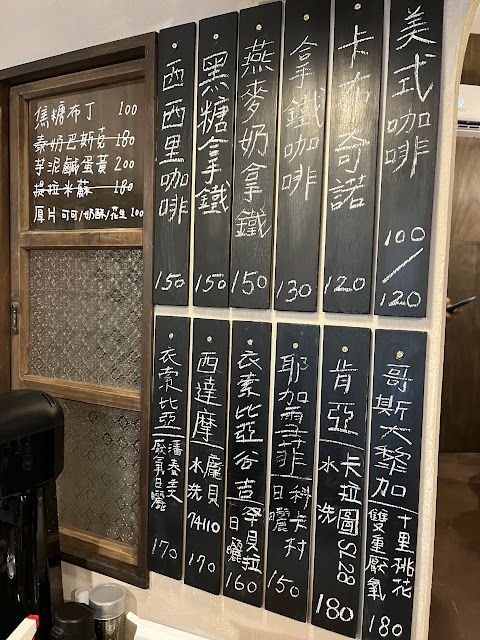 焦糖布丁 100
泰奶巴斯克 180
芋泥鹹蛋黃 200
提拉米蘇 180
厚片 可可/奶酥/花生 100
美式咖啡
100/120
卡布奇諾
120
拿鐵咖啡
130
燕麥奶拿鐵
150
黑糖拿鐵
150
西西里咖啡
150
哥斯大黎加
十里桃花
雙重厭氧
180
肯亞
卡拉圖SL28
水洗
180
耶加雪菲
科卡村
日曬
150
衣索比亞谷吉
孕貝拉
日曬
160
西達摩
龐貝
水洗
74110
170
衣索比亞
厭氧日曬
170